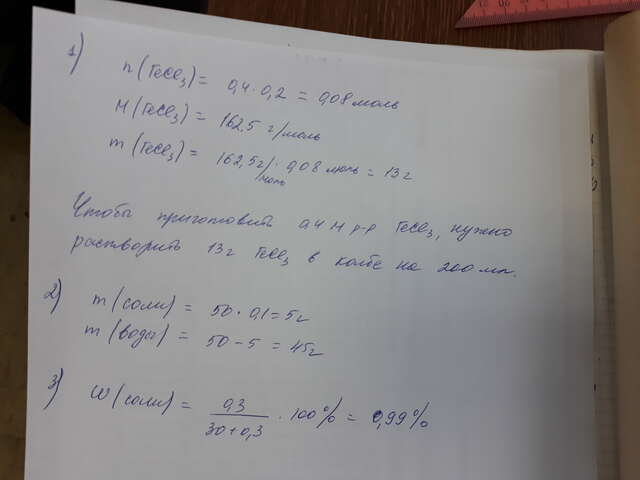 1)
n(FeCl₃) = 0,4 · 0,2 = 0,08 моль
M(FeCl₃) = 162,5 г/моль
m(FeCl₃) = 162,5 г/моль · 0,08 моль = 13 г
Чтобы приготовить 0,4 М р-р FeCl₃, нужно
растворить 13 г FeCl₃ в колбе на 200 мл.
2) m(соли) = 50 · 0,1 = 5 г
m(воды) = 50 - 5 = 45 г
3) W(соли) = 0,3 / 30+0,3 · 100% = 0,99%